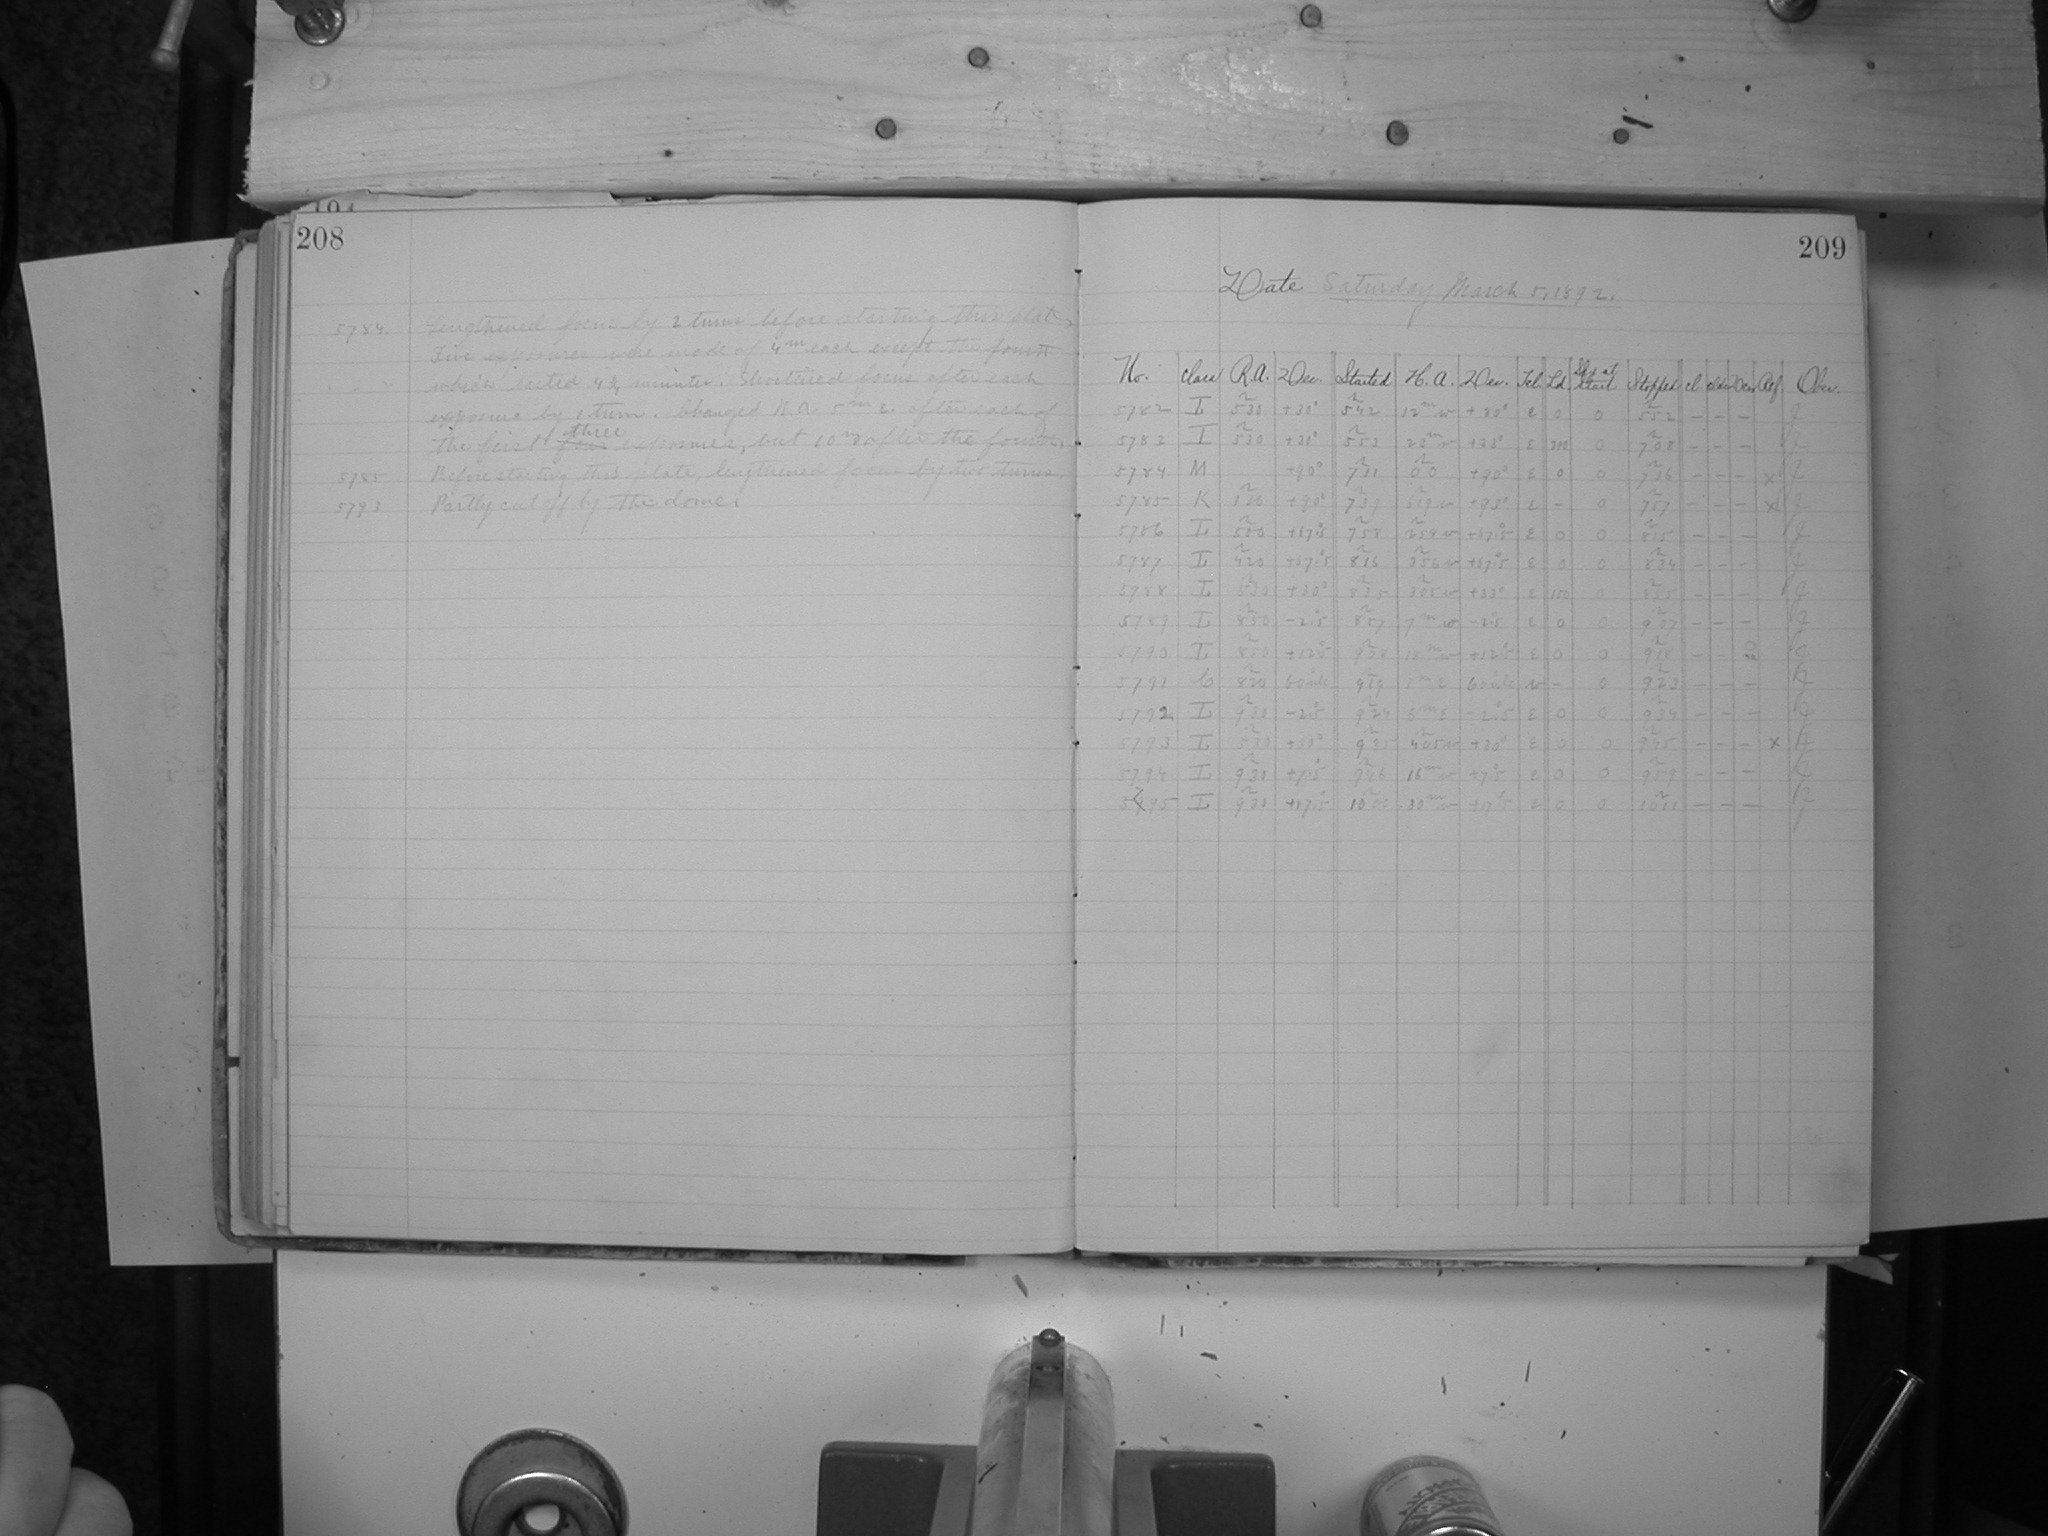 194
208
5784. Lengthened focus by 2 turns before starting this plate.
Five exposures were made of 4m each except the fourth
which lasted minutes. Shortened focus after each
exposure by 1 turn. Changed R.A. 5m E. after each of
the first three exposures, but 10m after the fourth.
5785 Before starting this plate, lengthened focus by two turns.
5793 Partly cut off by the dome.
209
Date Saturday March 5, 1892.
No. class R.A. Dec. Started H.A. Dec. Tel. Ld. Start Stopped cl. Ref. Obs.
5782 I 530 +30° 542 12m w +30° E 0 0 552 J
5783 I 530 +30° 553 23m w +33° E 0 708 - - - J
5784 M +90° 721 00 +90° E 0 0 736 - - - x J
5785 K +90° 739 +90° E - 0 757 - - - x J
5786 I 500 +17.5 758 254 w +17.5 E 0 0 815 - - - J
5787 I 420 +17.5 816 356 w +17.5 E 0 0 834 - - - J
5788 I 530 +30° 835 305 w +33° E 150 0 - - - J
5789 I 850 -2.5 857 7m w -2.5 E 0 0 907 - - - J
5790 I 850 +12.5 908 18m w +12.5 E 0 0 918 - - J
5791 C 820 919 w - 0 923 - - - J
5792 I 930 -2.5 924 6m E -2.5 E 0 0 934 - - - J
5793 I 530 +30° 935 405 w +30° E 0 0 945 - - - x J
5794 I 930 +7.5 946 16m w +7.5 E 0 0 959 - - - J
5795 I 930 +17.5 1000 30m w +17.5 E 0 0 - - - J